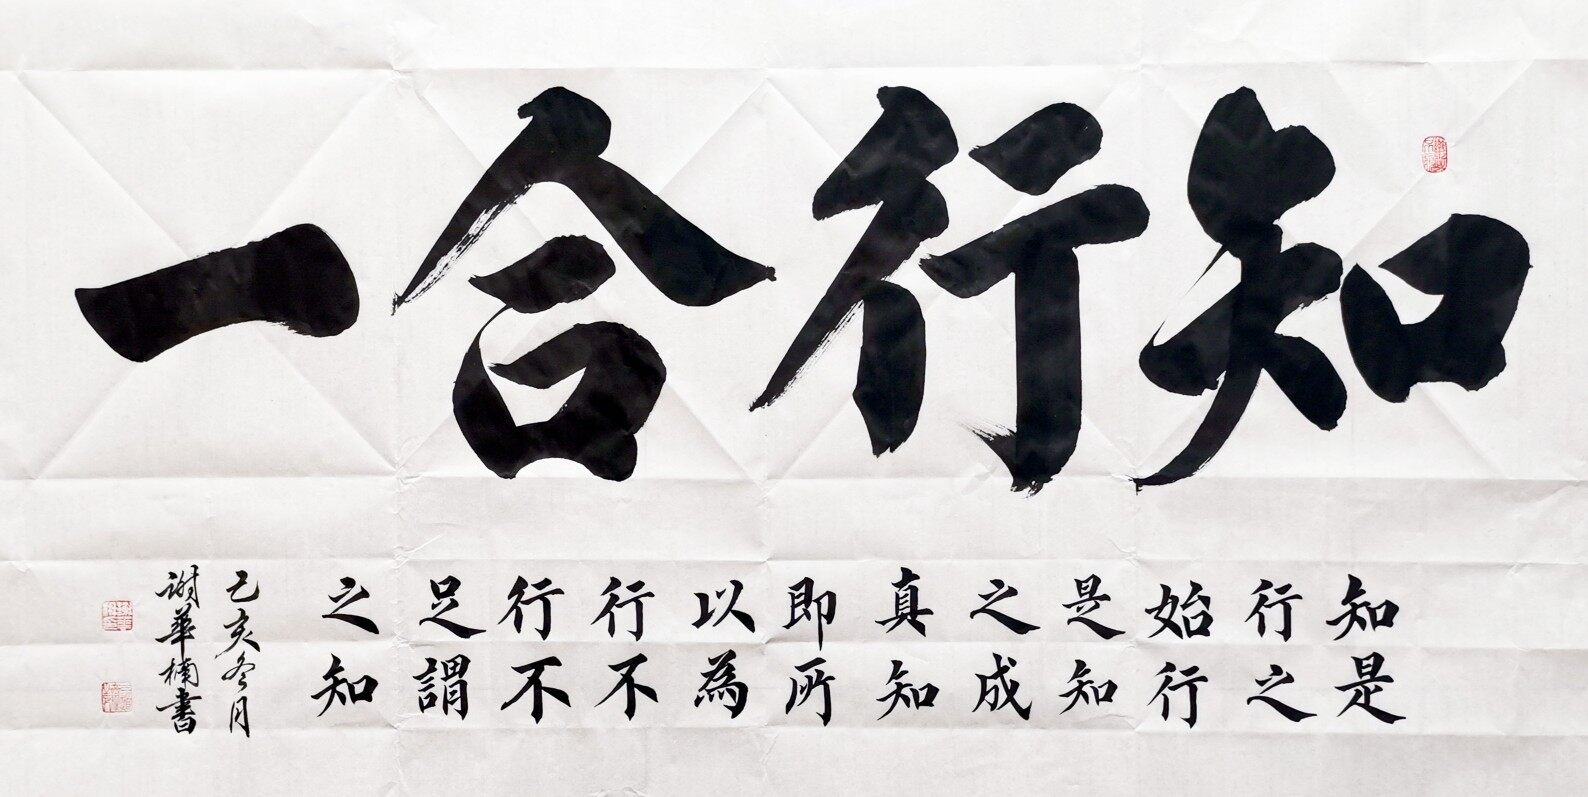 知行合一
知是
行之
始行
是知
之成
真知
即所
以為
行不
行不
足謂
之知
己亥冬月
謝華楠書